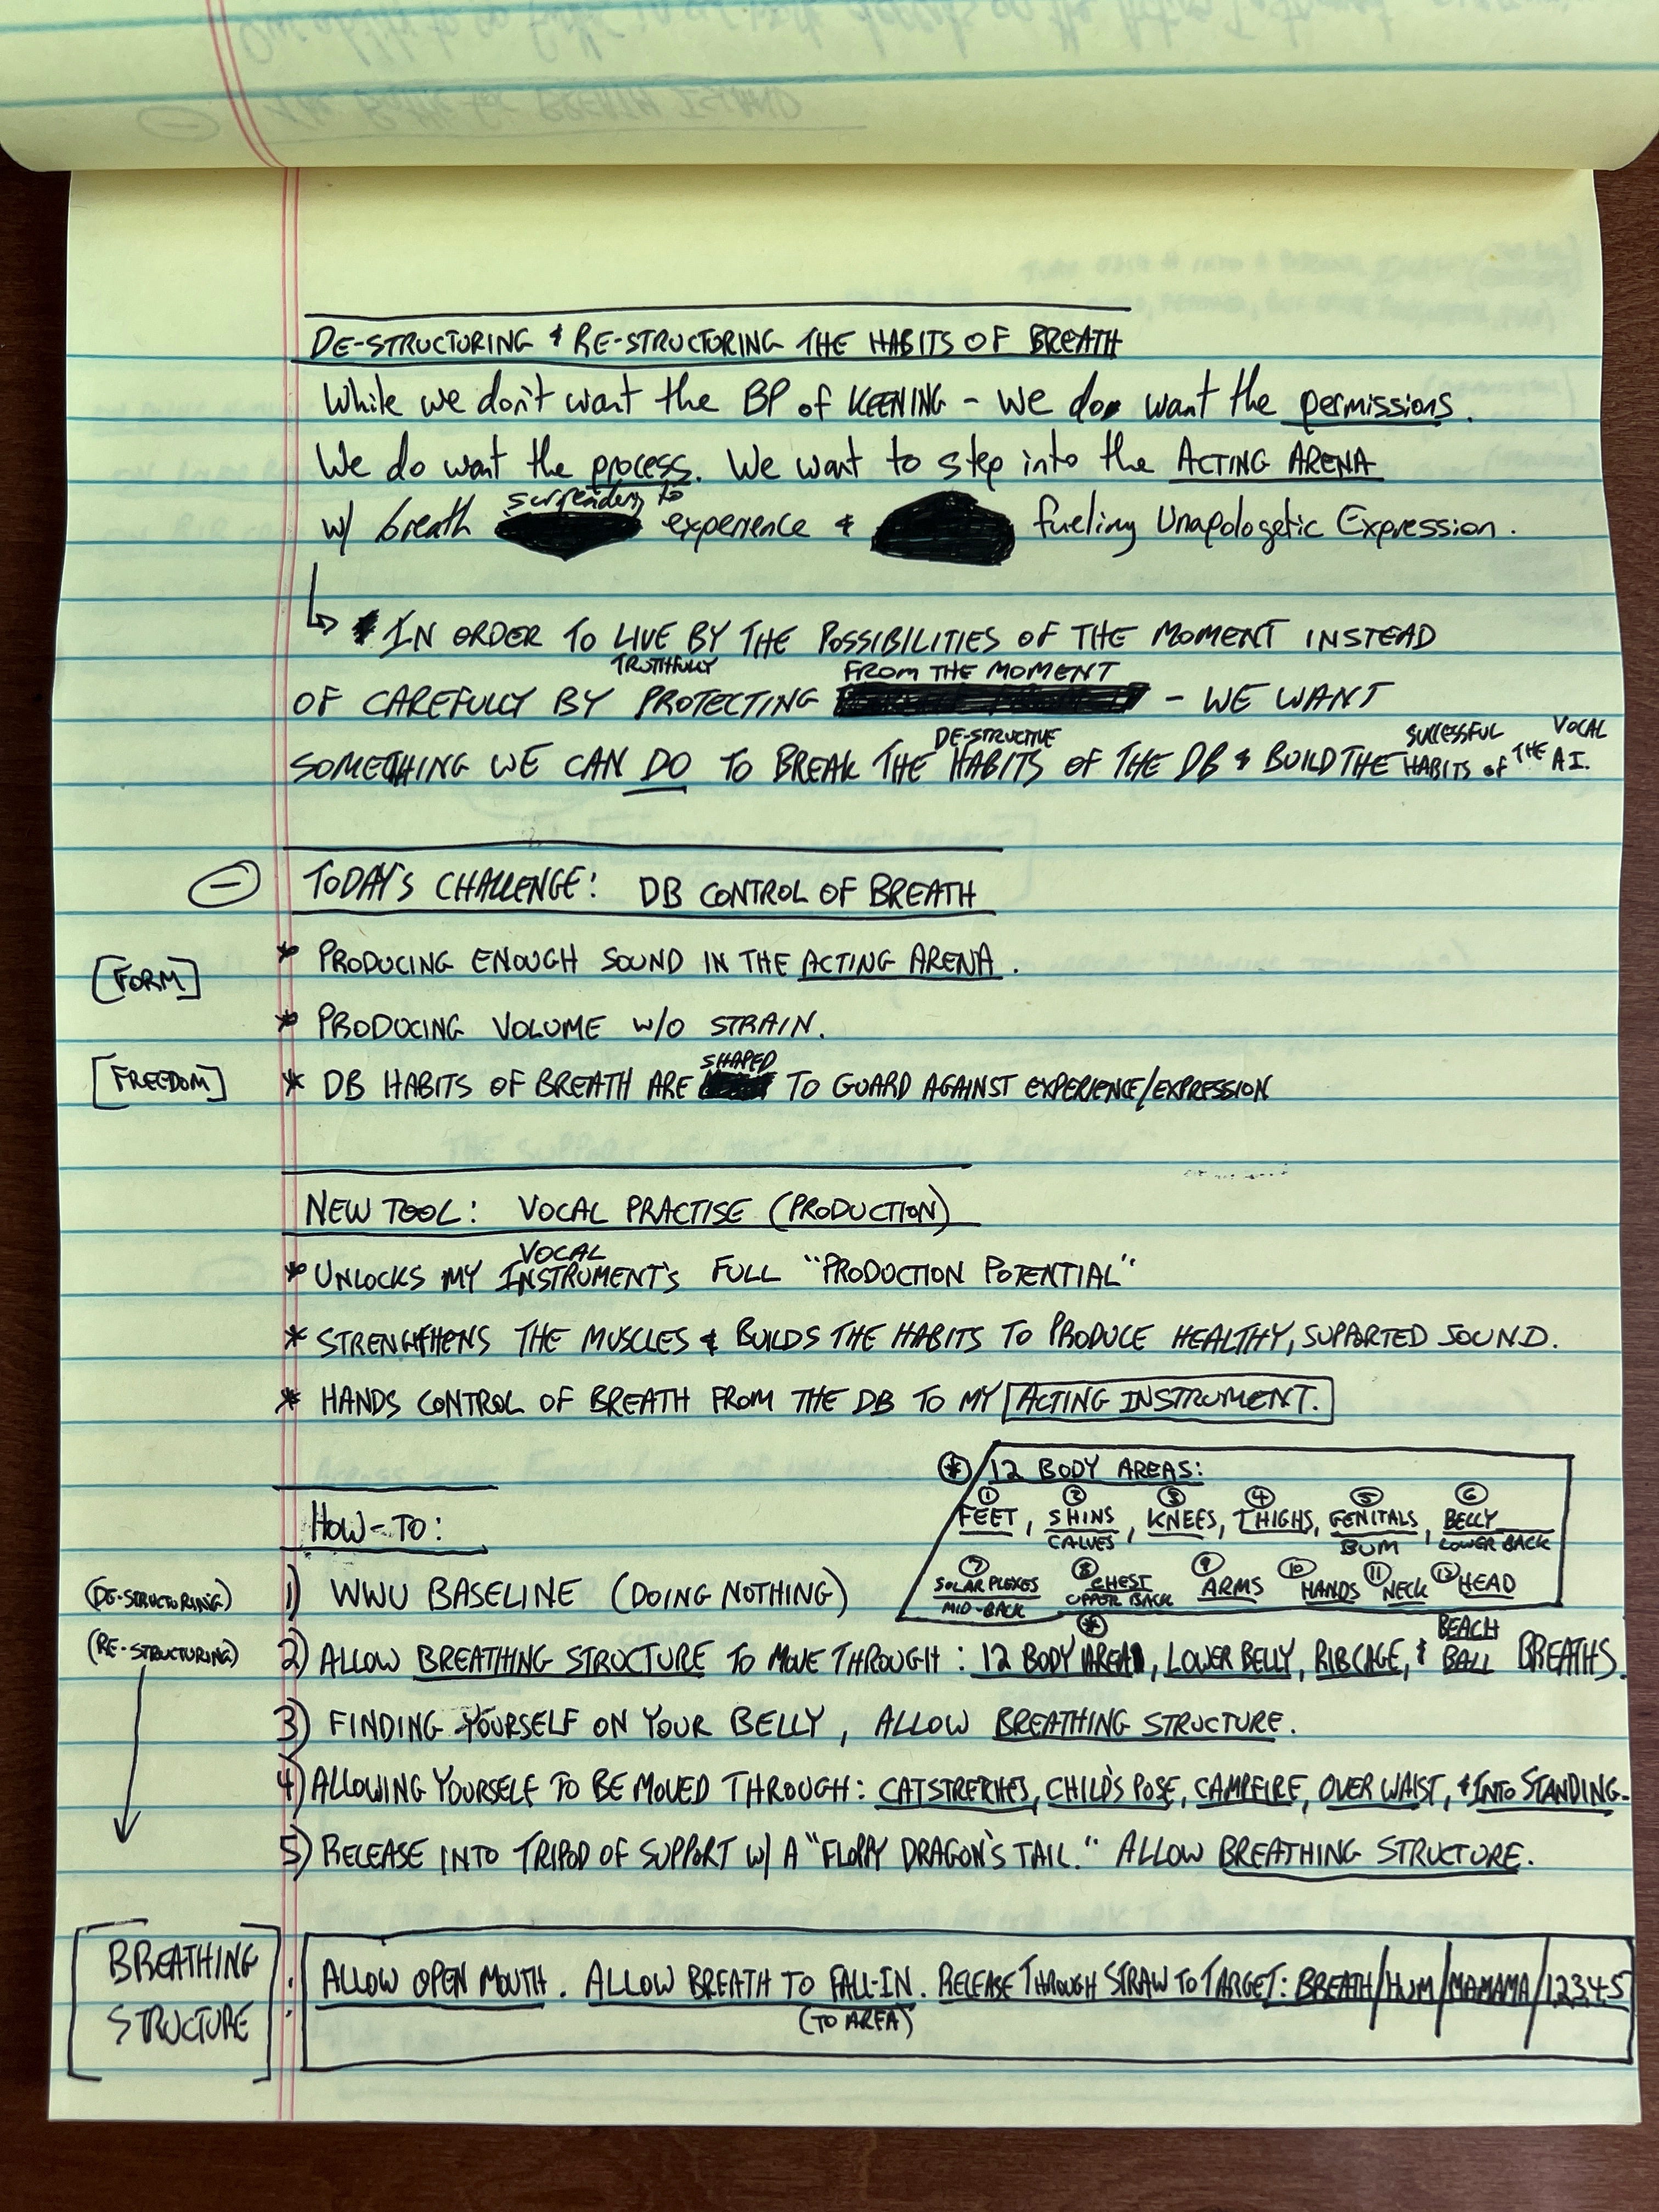 DE-STRUCTURING & RE-STRUCTURING THE HABITS OF BREATH
While we don't want the BP of KEENING - we do want the permissions.
We do want the process. We want to step into the ACTING ARENA
w/ breath surrendering to experience & fueling Unapologetic Expression.
IN ORDER TO LIVE BY THE POSSIBILITIES OF THE MOMENT INSTEAD
TRUTHFULLY FROM THE MOMENT
OF CAREFULLY BY PROTECTING - WE WANT
DE-STRUCTIVE SUCCESSFUL VOCAL
SOMETHING WE CAN DO TO BREAK THE HABITS OF THE DB & BUILD THE HABITS of THE AI.
TODAY'S CHALLENGE: DB CONTROL OF BREATH
[FORM] * PRODUCING ENOUGH SOUND IN THE ACTING ARENA.
* PRODUCING VOLUME W/O STRAIN.
[FREEDOM] * DB HABITS OF BREATH ARE SHAPED TO GUARD AGAINST EXPERIENCE/EXPRESSION
NEW TOOL: VOCAL PRACTISE (PRODUCTION)
* UNLOCKS MY VOCAL INSTRUMENT'S FULL "PRODUCTION POTENTIAL"
* STRENGTHENS THE MUSCLES & BUILDS THE HABITS TO PRODUCE HEALTHY, SUPPORTED SOUND.
* HANDS CONTROL OF BREATH FROM THE DB TO MY ACTING INSTRUMENT.
* 12 BODY AREAS:
① FEET, ② SHINS CALVES, ③ KNEES, ④ THIGHS, ⑤ GENITALS BUM, ⑥ BELLY LOWER BACK
⑦ SOLAR PLEXES MID-BACK ⑧ CHEST UPPER BACK ⑨ ARMS ⑩ HANDS ⑪ NECK ⑫ HEAD
HOW-TO:
(DE-STRUCTURING) 1) WWU BASELINE (DOING NOTHING)
(RE-STRUCTURING) 2) ALLOW BREATHING STRUCTURE TO MOVE THROUGH: 12 BODY AREA*, LOWER BELLY, RIBCAGE, & BEACH BALL BREATHS.
3) FINDING YOURSELF ON YOUR BELLY, ALLOW BREATHING STRUCTURE.
4) ALLOWING YOURSELF TO BE MOVED THROUGH: CATSTRETCHES, CHILD'S POSE, CAMPFIRE, OVER WAIST, & INTO STANDING.
5) RELEASE INTO TRIPOD OF SUPPORT W/ A "FLOPPY DRAGON'S TAIL." ALLOW BREATHING STRUCTURE.
[BREATHING STRUCTURE]: ALLOW OPEN MOUTH. ALLOW BREATH TO FALL-IN. RELEASE THROUGH STRAW TO TARGET: BREATH/HUM/MAMAMA/12345
(TO AREA)